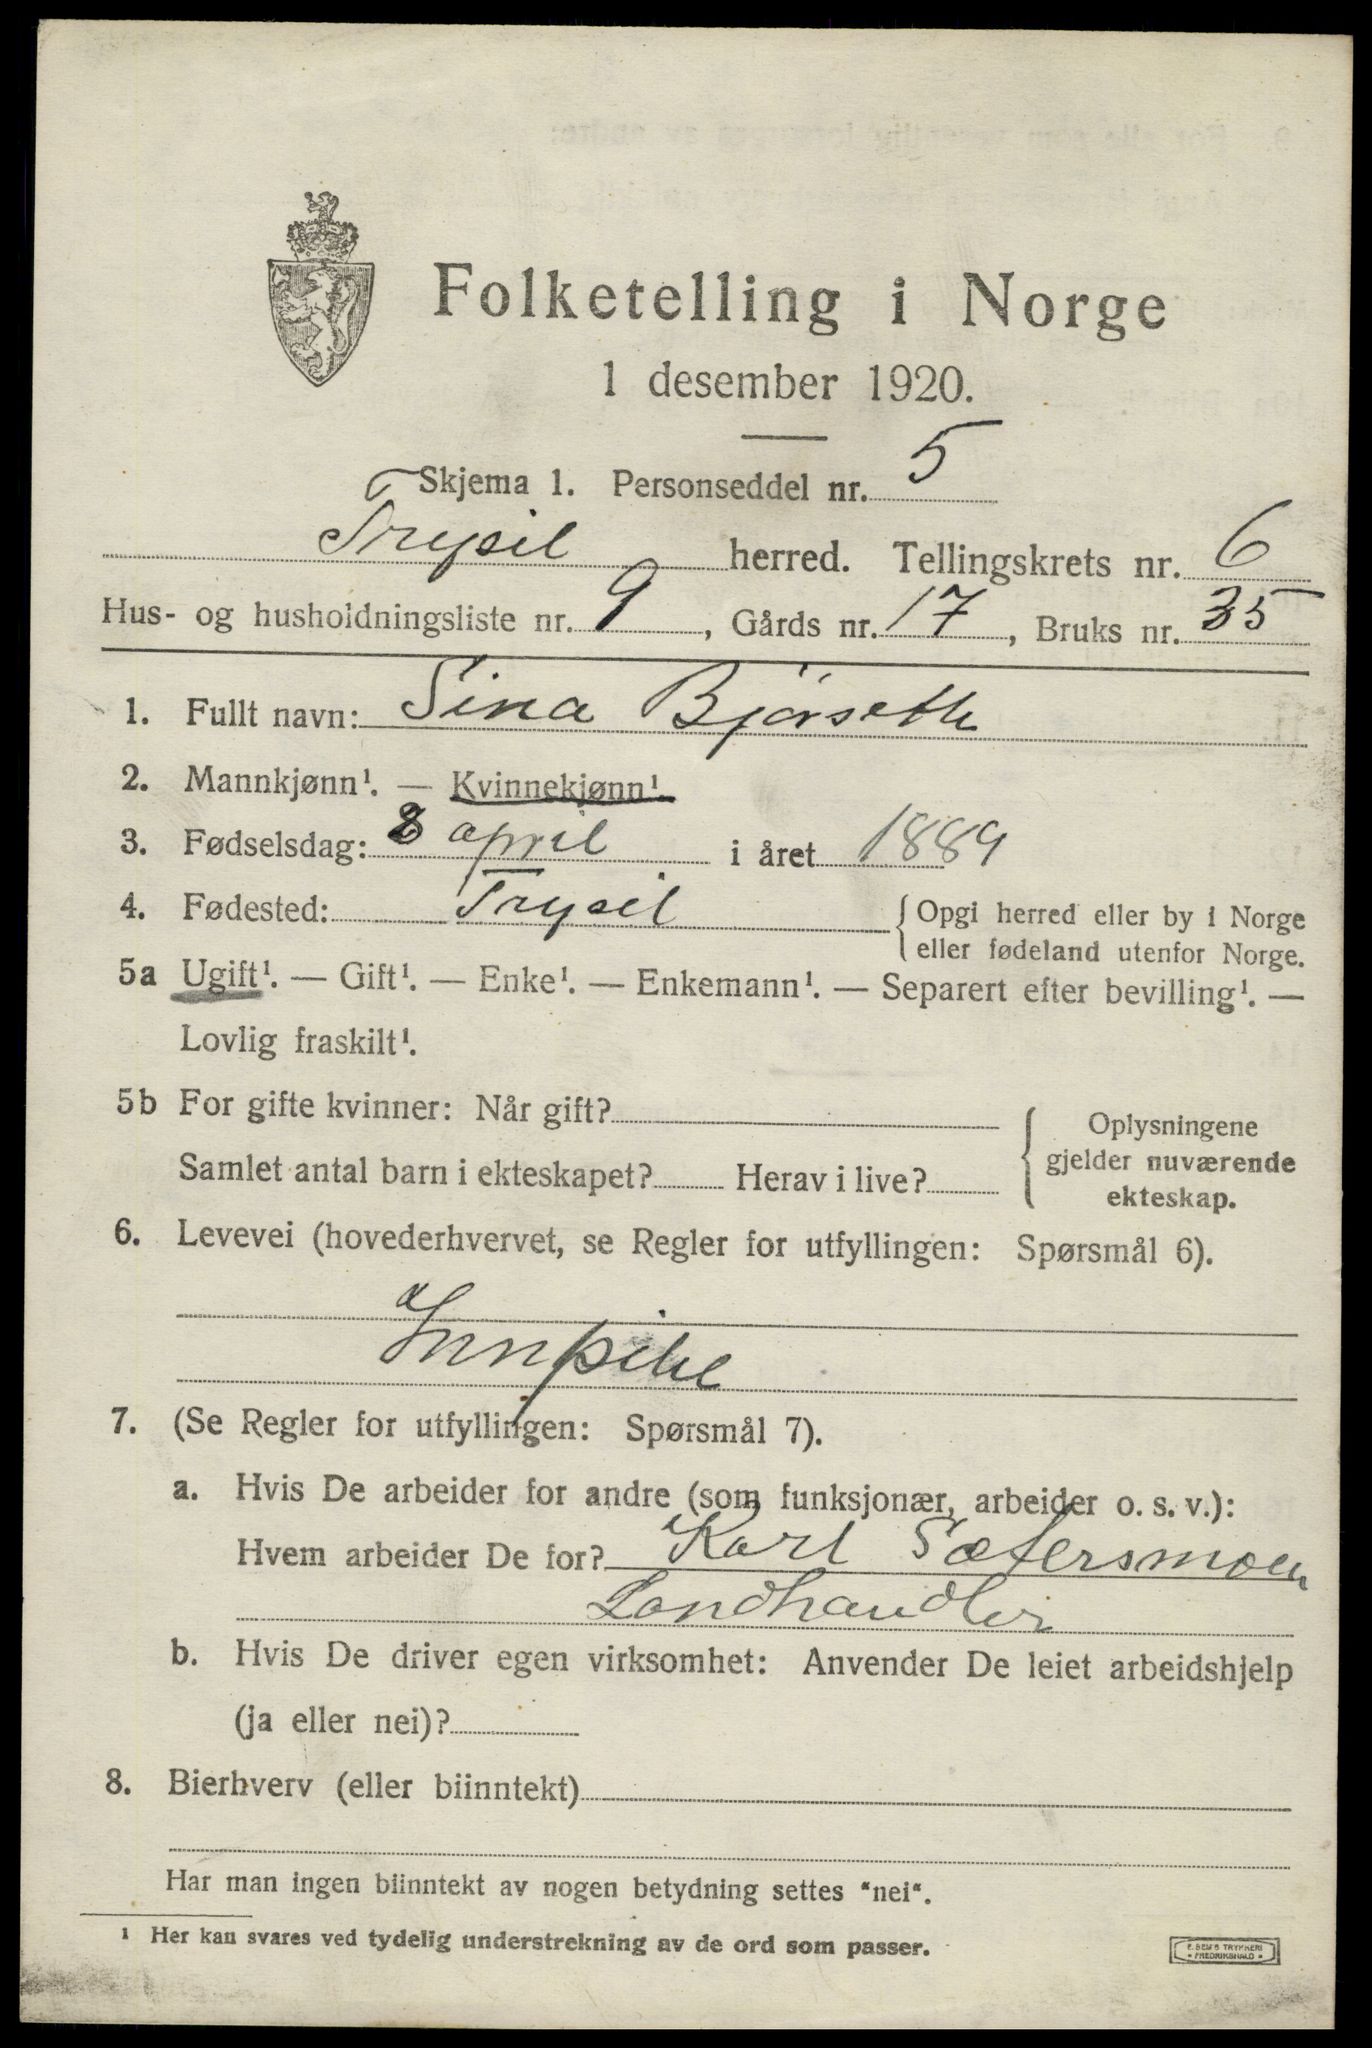 Folketelling i Norge
1 desember 1920.
Skjema 1. Personseddel nr. 5
Trysil herred. Tellingskrets nr. 6
Hus- og husholdningsliste nr. 9, Gårds nr. 17, Bruks nr. 35
1. Fullt navn: Sina Bjørseth
2. Mannkjønn¹. — Kvinnekjønn¹.
3. Fødselsdag: 8 april i året 1889
4. Fødested: Trysil {Opgi herred eller by i Norge
eller fødeland utenfor Norge.
5a Ugift¹. — Gift¹. — Enke¹. — Enkemann¹. — Separert efter bevilling¹. —
Lovlig fraskilt¹.
5b For gifte kvinner: Når gift?
Samlet antal barn i ekteskapet? Herav i live?
Oplysningene
gjelder nuværende
ekteskap.
6. Levevei (hovederhvervet, se Regler for utfyllingen: Spørsmål 6).
Innpike
7. (Se Regler for utfyllingen: Spørsmål 7).
a. Hvis De arbeider for andre (som funksjonær, arbeider o. s. v.):
Hvem arbeider De for? Karl Sætersmoen
Landhandler
b. Hvis De driver egen virksomhet: Anvender De leiet arbeidshjelp
(ja eller nei)?
8. Bierhverv (eller biinntekt)
Har man ingen biinntekt av nogen betydning settes "nei".
¹ Her kan svares ved tydelig understrekning av de ord som passer.
E. SEMS TRYKKERI
FREDRIKSHALD